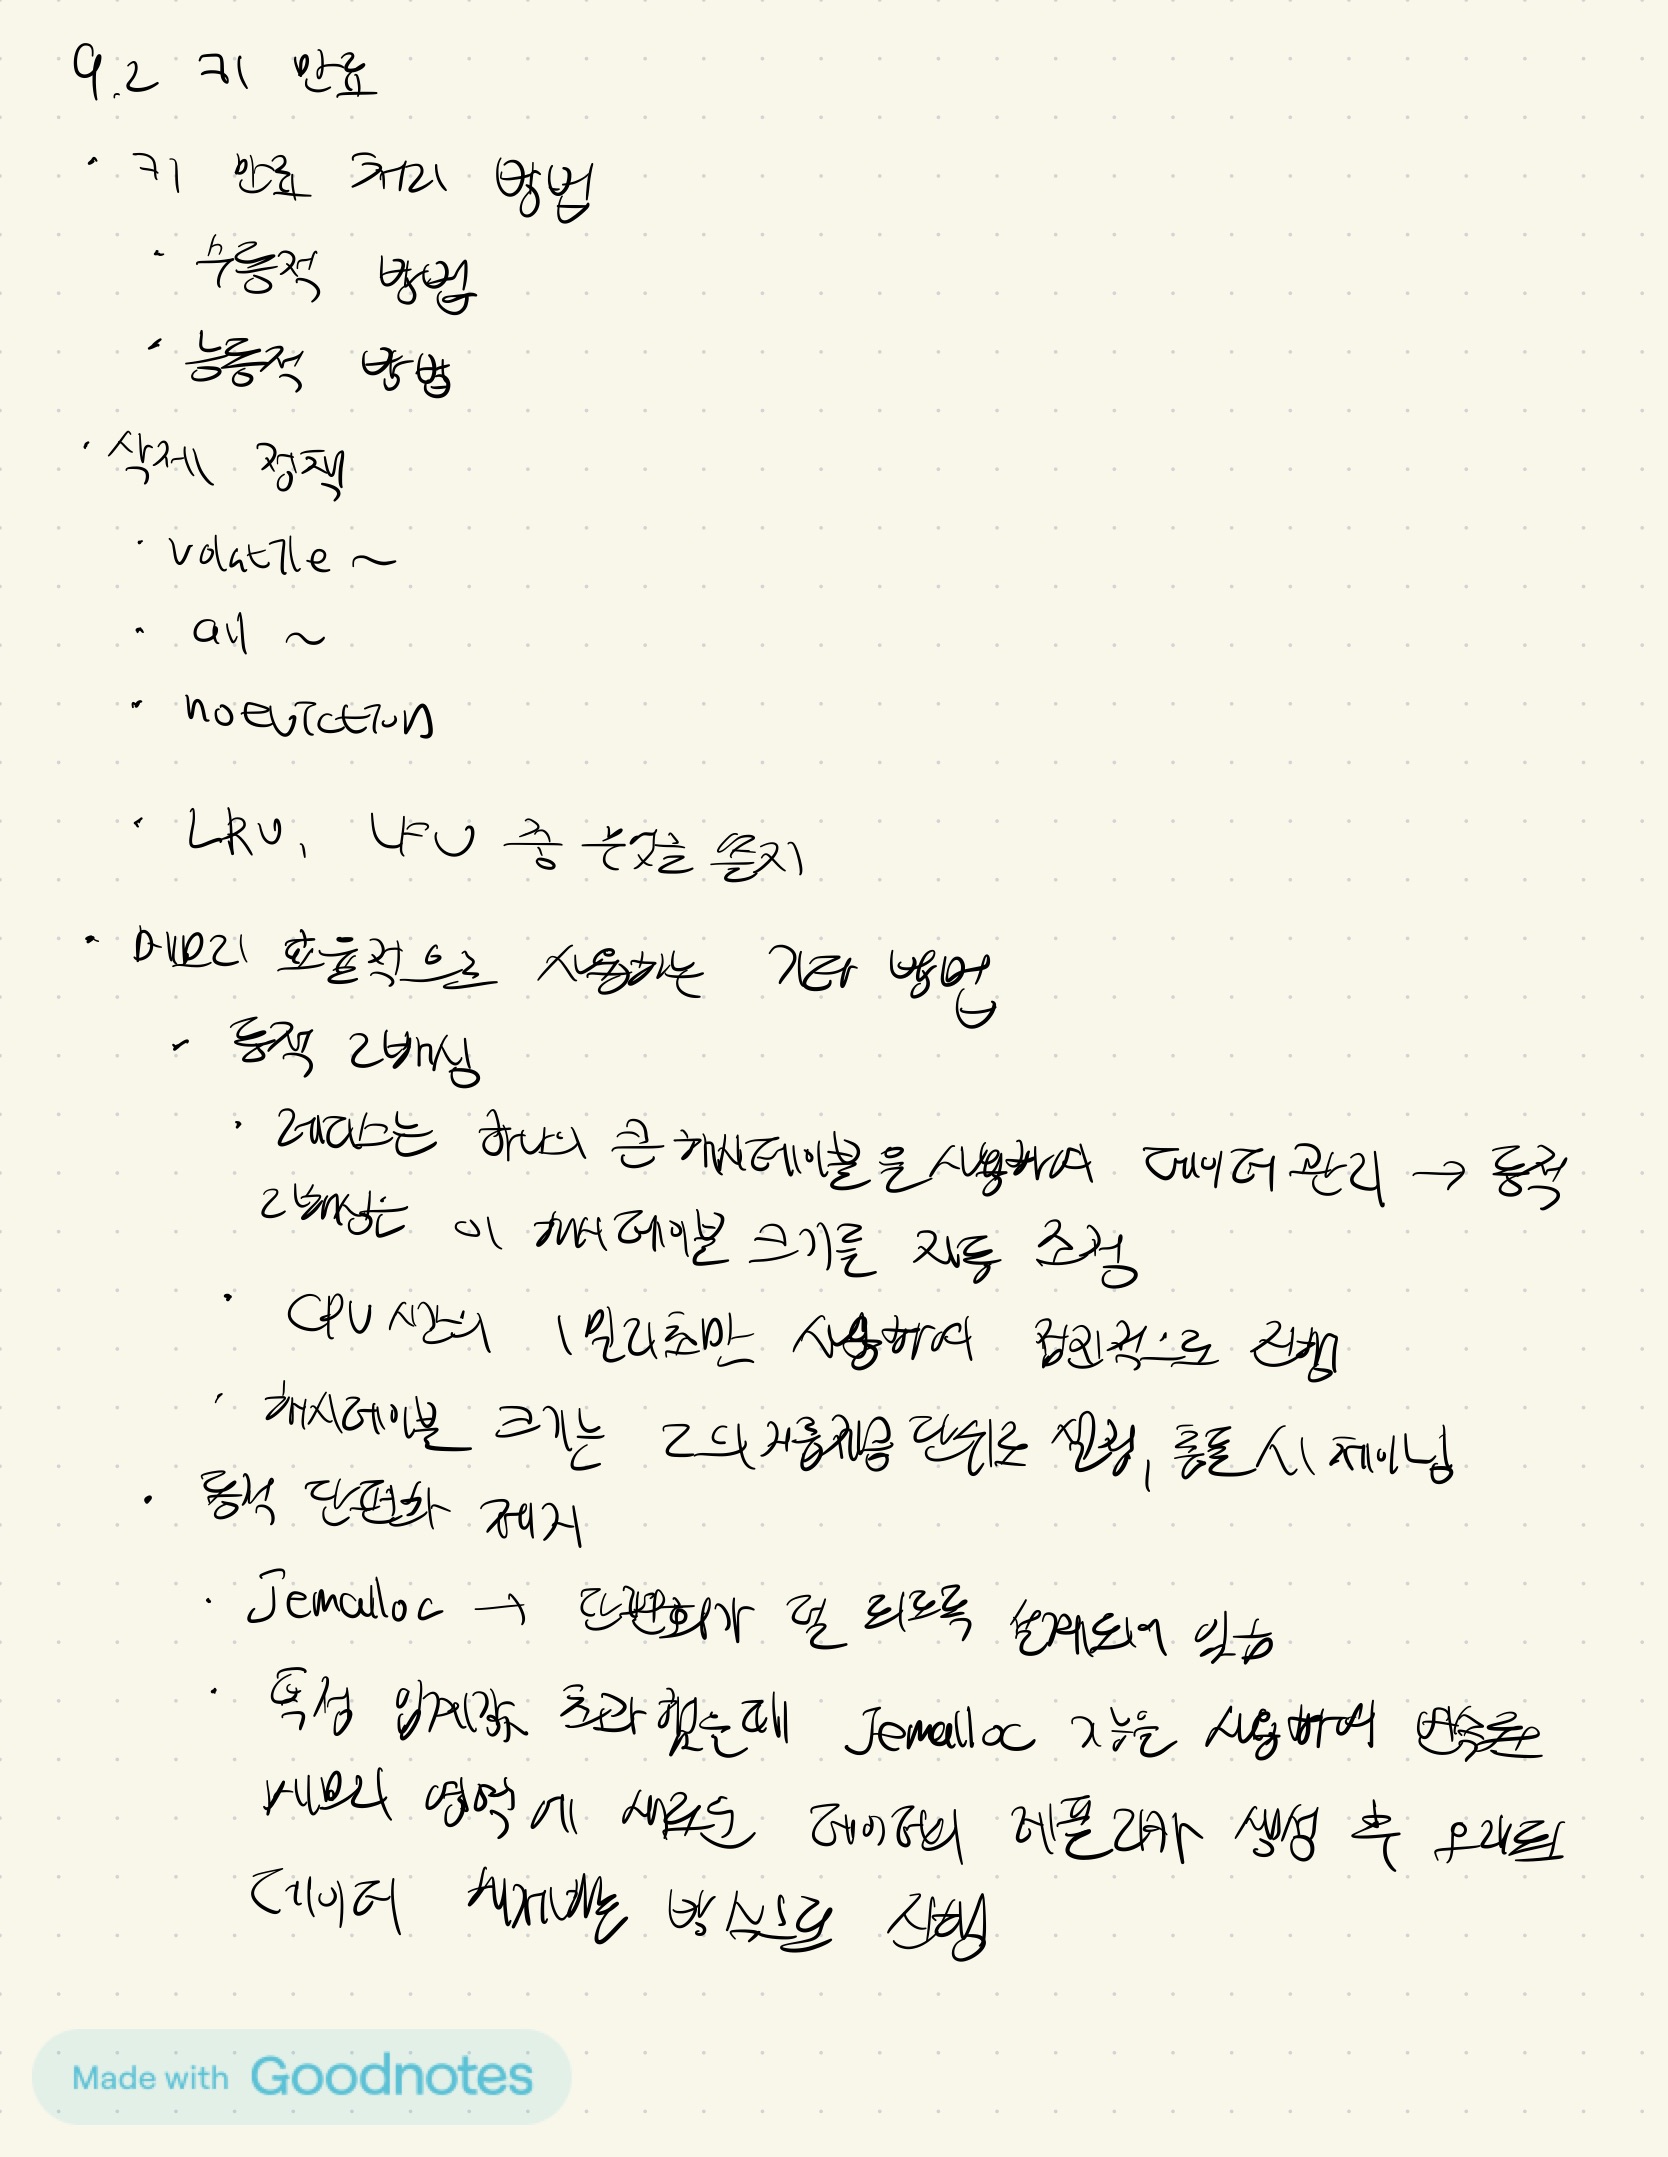 9.2 키 만료
· 키 만료 처리 방법
· 수동적 방법
· 능동적 방법
· 삭제 정책
· volatile ~
· all ~
· noeviction
· LRU, LFU 중 무엇을 쓸지
· 메모리 효율적으로 사용하는 기타 방법
· 동적 리해싱
· 레디스는 하나의 큰 해시테이블을 사용하여 데이터 관리 → 동적
리해싱은 이 해시 테이블 크기를 자동 조정
· CPU 시간의 1밀리초만 사용하여 점진적으로 진행
· 해시테이블 크기는 2의 거듭제곱 단위로 설정, 충돌 시 체이닝
· 동적 단편화 제거
· Jemalloc → 단편화가 덜 되도록 설계되어 있음
· 특정 임계값 초과했는데 Jemalloc 기능을 사용하여 연속된
메모리 영역에 새로운 데이터의 레플리카 생성 후 오래된
데이터 해제하는 방식으로 진행
Made with Goodnotes